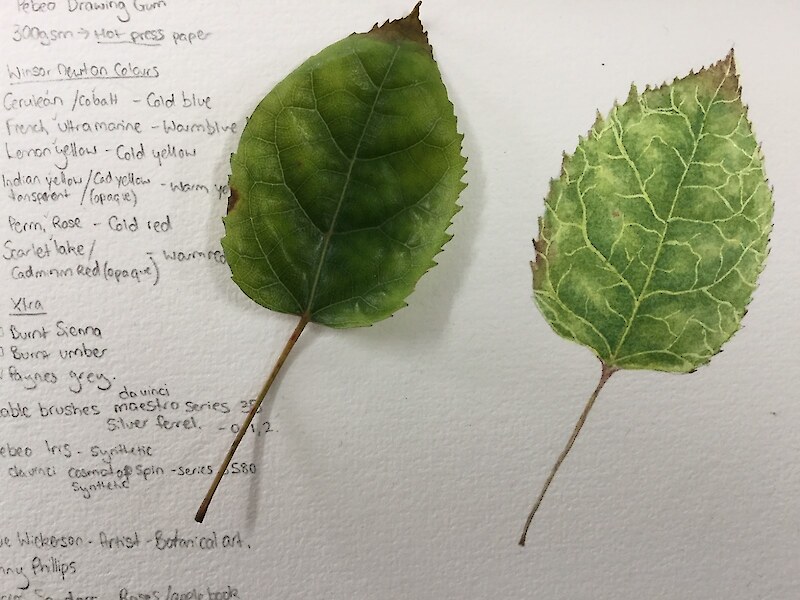 Pebeo Drawing Gum
300gsm → Hot press paper
Winsor Newton Colours
Cerulean / cobalt - Cold blue
French Ultramarine - Warm blue
Lemon yellow - Cold yellow
Indian yellow / Cad yellow - Warm ye
transparent / (opaque)
Perm, Rose - Cold red
Scarlet lake /
Cadminm Red (opaque) - warm red
Xtra
Burnt Sienna
Burnt umber
Paynes grey.
davinci
able brushes maestro series 35
Silver ferrel. - 0, 1, 2.
ebeo Iris - Synthetic
davinci spin - series 5580
Synthetic
ue Wickerson - Artist - Botanical art.
nny Phillips
Roses / apple book